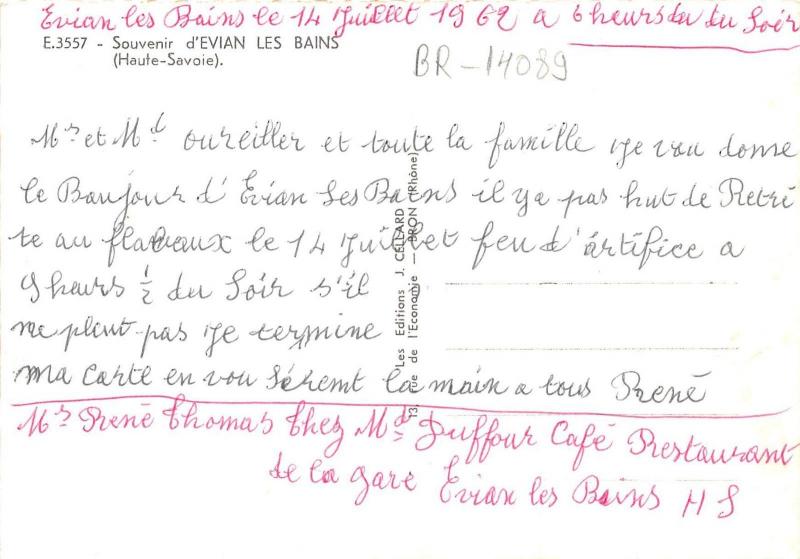 Evian les Bains le 14 Juillet 1962 a 6 heurs du du Soir
E.3557 - Souvenir d'EVIAN LES BAINS
(Haute-Savoie).
BR-14089
Mr et Md oureiller et toute la famille je vou donne
le Boujour d'Evian Les Bains il ya pas hut de Retré
te au flabaux le 14 Juillet feu d'artifice a
9 heurs ½ du Soir s'il
ne pleut pas je termine
ma carte en vou séremt la main a tous René
Les Editions J. CELLARD
13, rue de l'Economie — BRON (Rhône)
Mr René Thomas Chez Md Duffour Café Restaurant
de la gare Evian les Bains H S